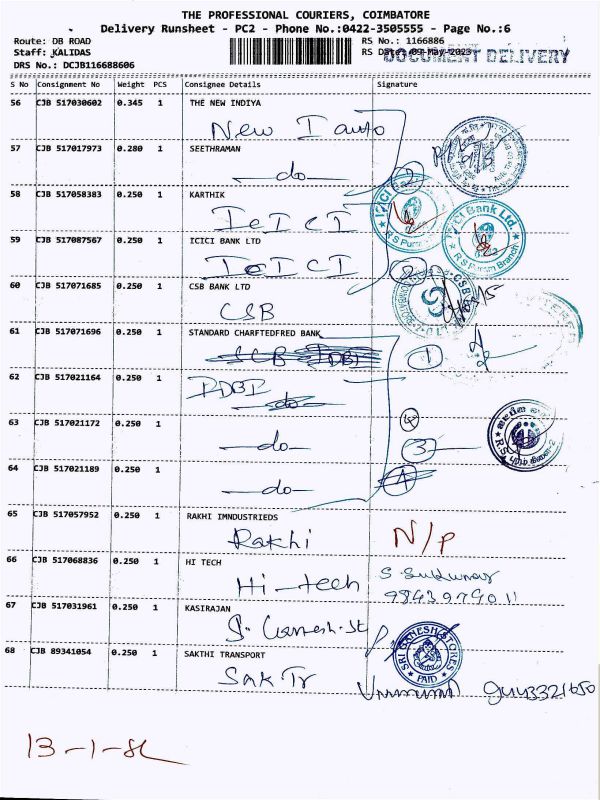 THE PROFESSIONAL COURIERS, COIMBATORE
Delivery Runsheet - PC2 - Phone No.:0422-3505555 - Page No.:6
Route: DB ROAD RS No.: 1166886
Staff: KALIDAS RS Date: 09-May-2023
DOCUMENT DELIVERY
DRS No.: DCJB116688606
S No Consignment No Weight PCS Consignee Details Signature
56 CJB 517030602 0.345 1 THE NEW INDIYA
New I
57 CJB 517017973 0.280 1 SEETHRAMAN
—do— 2
58 CJB 517058383 0.250 1 KARTHIK
ICICI
59 CJB 517087567 0.250 1 ICICI BANK LTD
ICICI 2
ICICI Bank Ltd.
R S Puram Branch
60 CJB 517071685 0.250 1 CSB BANK LTD
CSB
61 CJB 517071696 0.250 1 STANDARD CHARFTEDFRED BANK
SCB IDBI 1
62 CJB 517021164 0.250 1
IDBI
—do—
63 CJB 517021172 0.250 1
—do— 3
64 CJB 517021189 0.250 1
—do—
65 CJB 517057952 0.250 1 RAKHI IMNDUSTRIEDS
Rakhi N/P
66 CJB 517068836 0.250 1 HI TECH
Hi-tech
67 CJB 517031961 0.250 1 KASIRAJAN
S. Ganesh-St
SRI GANESH STORES
PAID
68 CJB 89341054 0.250 1 SAKTHI TRANSPORT
Sak Tr
13-1-